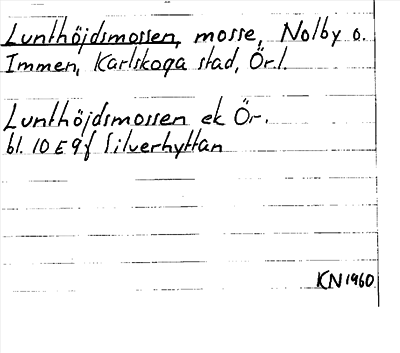 Lunthöjdsmossen, mosse, Nolby o.
Immen, Karlskoga stad, Örl.
Lunthöjdsmossen ek Ör.
bl. 10 E 9f Silverhyttan
KN 1960